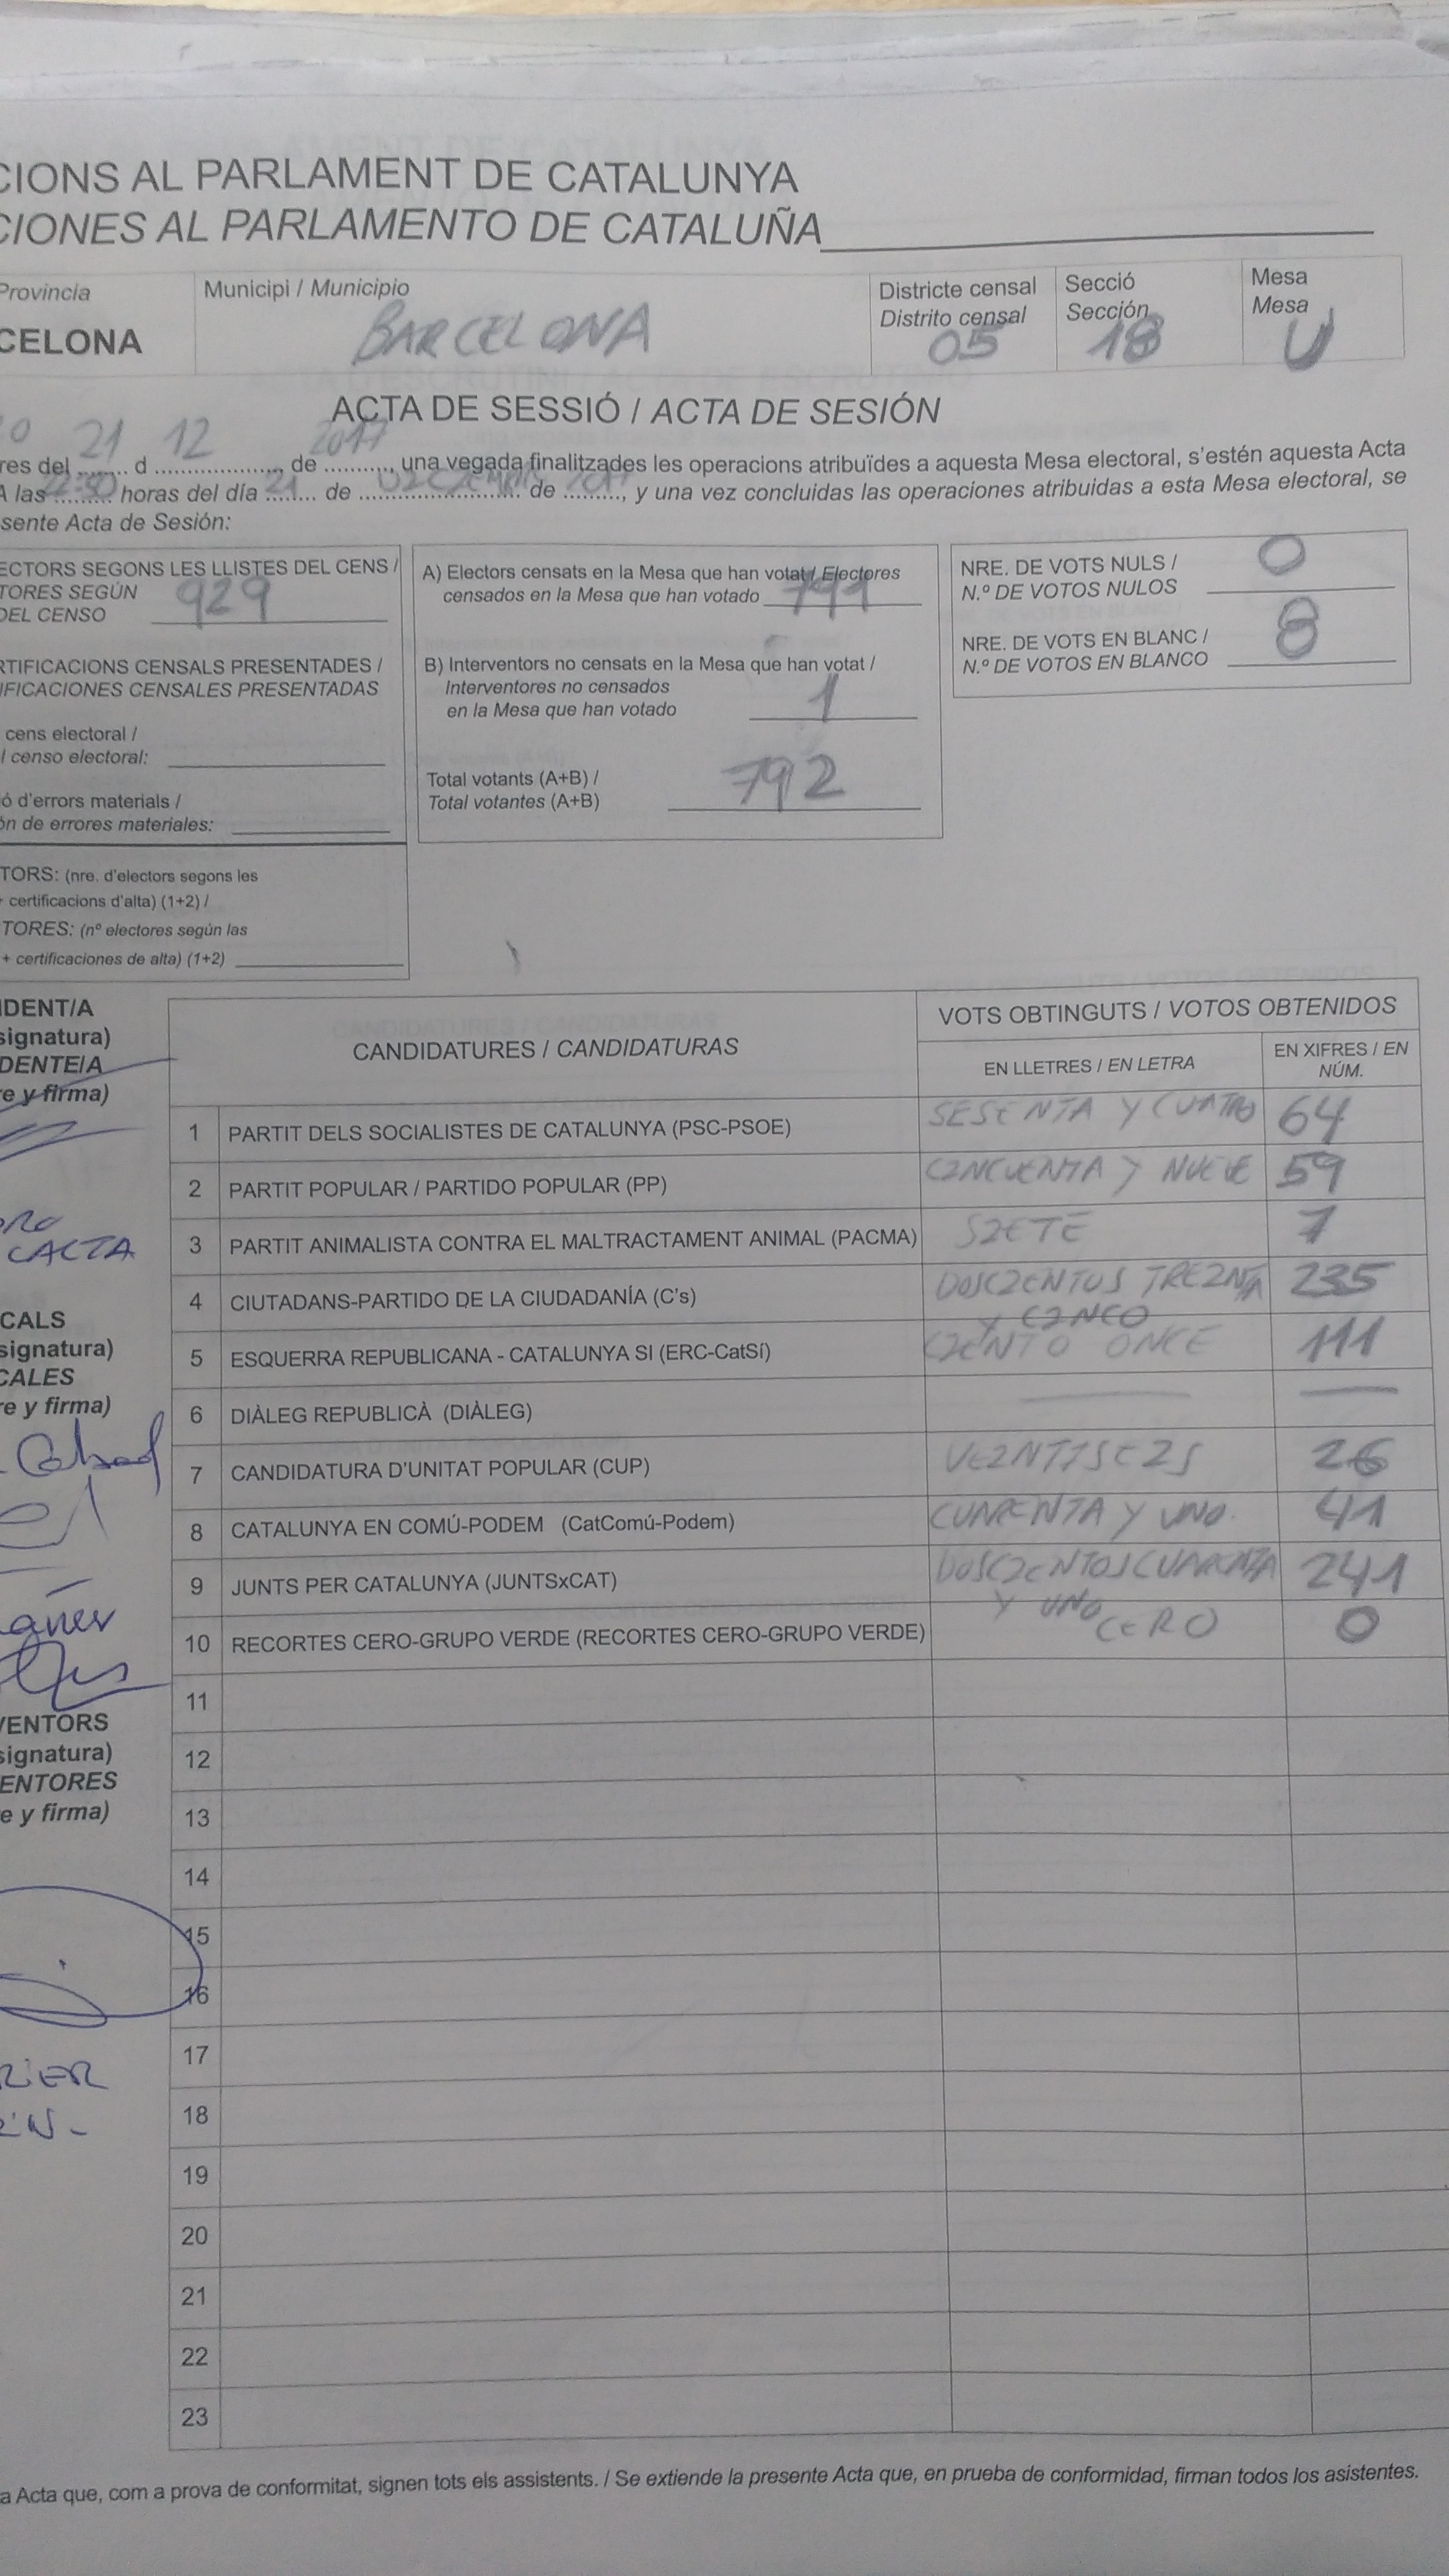 CIONS AL PARLAMENT DE CATALUNYA
CIONES AL PARLAMENTO DE CATALUÑA
Provincia
CELONA
Municipi / Municipio
BARCELONA
Districte censal
Distrito censal
05
Secció
Sección
18
Mesa
Mesa
U
ACTA DE SESSIÓ / ACTA DE SESIÓN
21 12 2017
res del ........ d ...................., de .........., una vegada finalitzades les operacions atribuïdes a aquesta Mesa electoral, s'estén aquesta Acta
A las 22:30 horas del día 21 de DIZIEMBRE de 2017, y una vez concluidas las operaciones atribuidas a esta Mesa electoral, se
sente Acta de Sesión:
ECTORS SEGONS LES LLISTES DEL CENS /
TORES SEGÚN
DEL CENSO 929
RTIFICACIONS CENSALS PRESENTADES /
IFICACIONES CENSALES PRESENTADAS
cens electoral /
l censo electoral:
ó d'errors materials /
ón de errores materiales:
TORS: (nre. d'electors segons les
+ certificacions d'alta) (1+2) /
TORES: (nº electores según las
+ certificaciones de alta) (1+2)
A) Electors censats en la Mesa que han votat / Electores
censados en la Mesa que han votado 791
B) Interventors no censats en la Mesa que han votat /
Interventores no censados
en la Mesa que han votado 1
Total votants (A+B) /
Total votantes (A+B) 792
NRE. DE VOTS NULS /
N.º DE VOTOS NULOS 0
NRE. DE VOTS EN BLANC /
N.º DE VOTOS EN BLANCO 8
IDENT/A
signatura)
DENTE/A
e y firma)
CACTA
CALS
signatura)
CALES
re y firma)
VENTORS
signatura)
ENTORES
e y firma)
CANDIDATURES / CANDIDATURAS
VOTS OBTINGUTS / VOTOS OBTENIDOS
EN LLETRES / EN LETRA
EN XIFRES / EN
NÚM.
1 PARTIT DELS SOCIALISTES DE CATALUNYA (PSC-PSOE) SESENTA Y CUATRO 64
2 PARTIT POPULAR / PARTIDO POPULAR (PP) CINCUENTA Y NUEVE 59
3 PARTIT ANIMALISTA CONTRA EL MALTRACTAMENT ANIMAL (PACMA) SIETE 7
4 CIUTADANS-PARTIDO DE LA CIUDADANÍA (C's) DOSCIENTOS TREINTA 235
Y CINCO
5 ESQUERRA REPUBLICANA - CATALUNYA SI (ERC-CatSí) CIENTO ONCE 111
6 DIÀLEG REPUBLICÀ (DIÀLEG) — —
7 CANDIDATURA D'UNITAT POPULAR (CUP) VEINTISEIS 26
8 CATALUNYA EN COMÚ-PODEM (CatComú-Podem) CUARENTA Y UNO. 41
9 JUNTS PER CATALUNYA (JUNTSxCAT) DOSCIENTOS CUARENTA 241
Y UNO
10 RECORTES CERO-GRUPO VERDE (RECORTES CERO-GRUPO VERDE) CERO 0
11
12
13
14
15
16
17
18
19
20
21
22
23
a Acta que, com a prova de conformitat, signen tots els assistents. / Se extiende la presente Acta que, en prueba de conformidad, firman todos los asistentes.